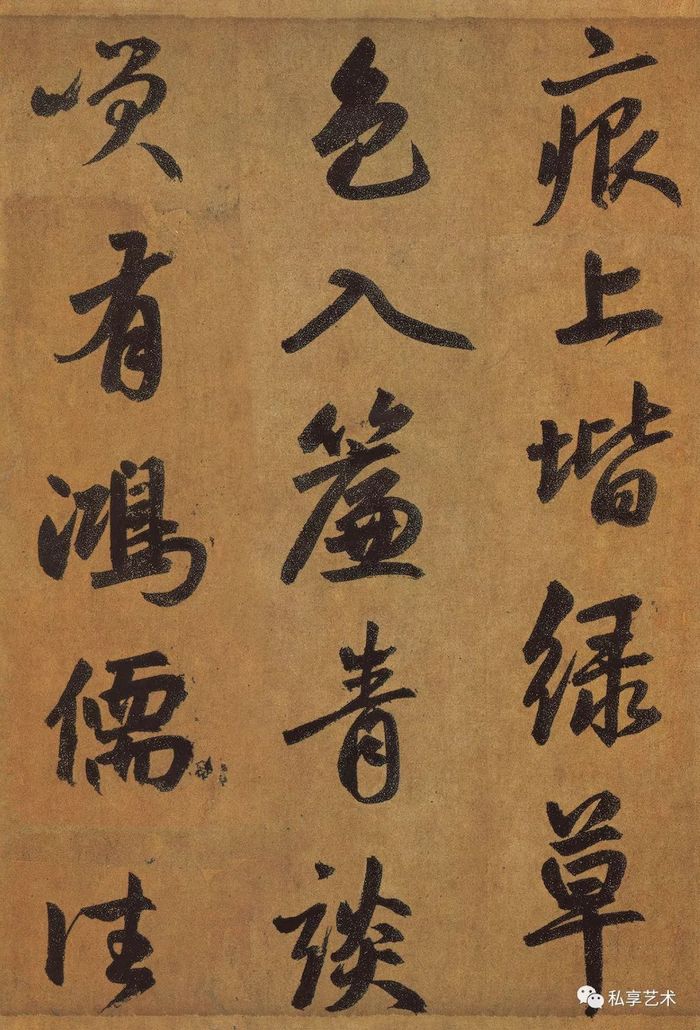 痕上堦绿草
色入簾青談
咲有鴻儒往
私享艺术